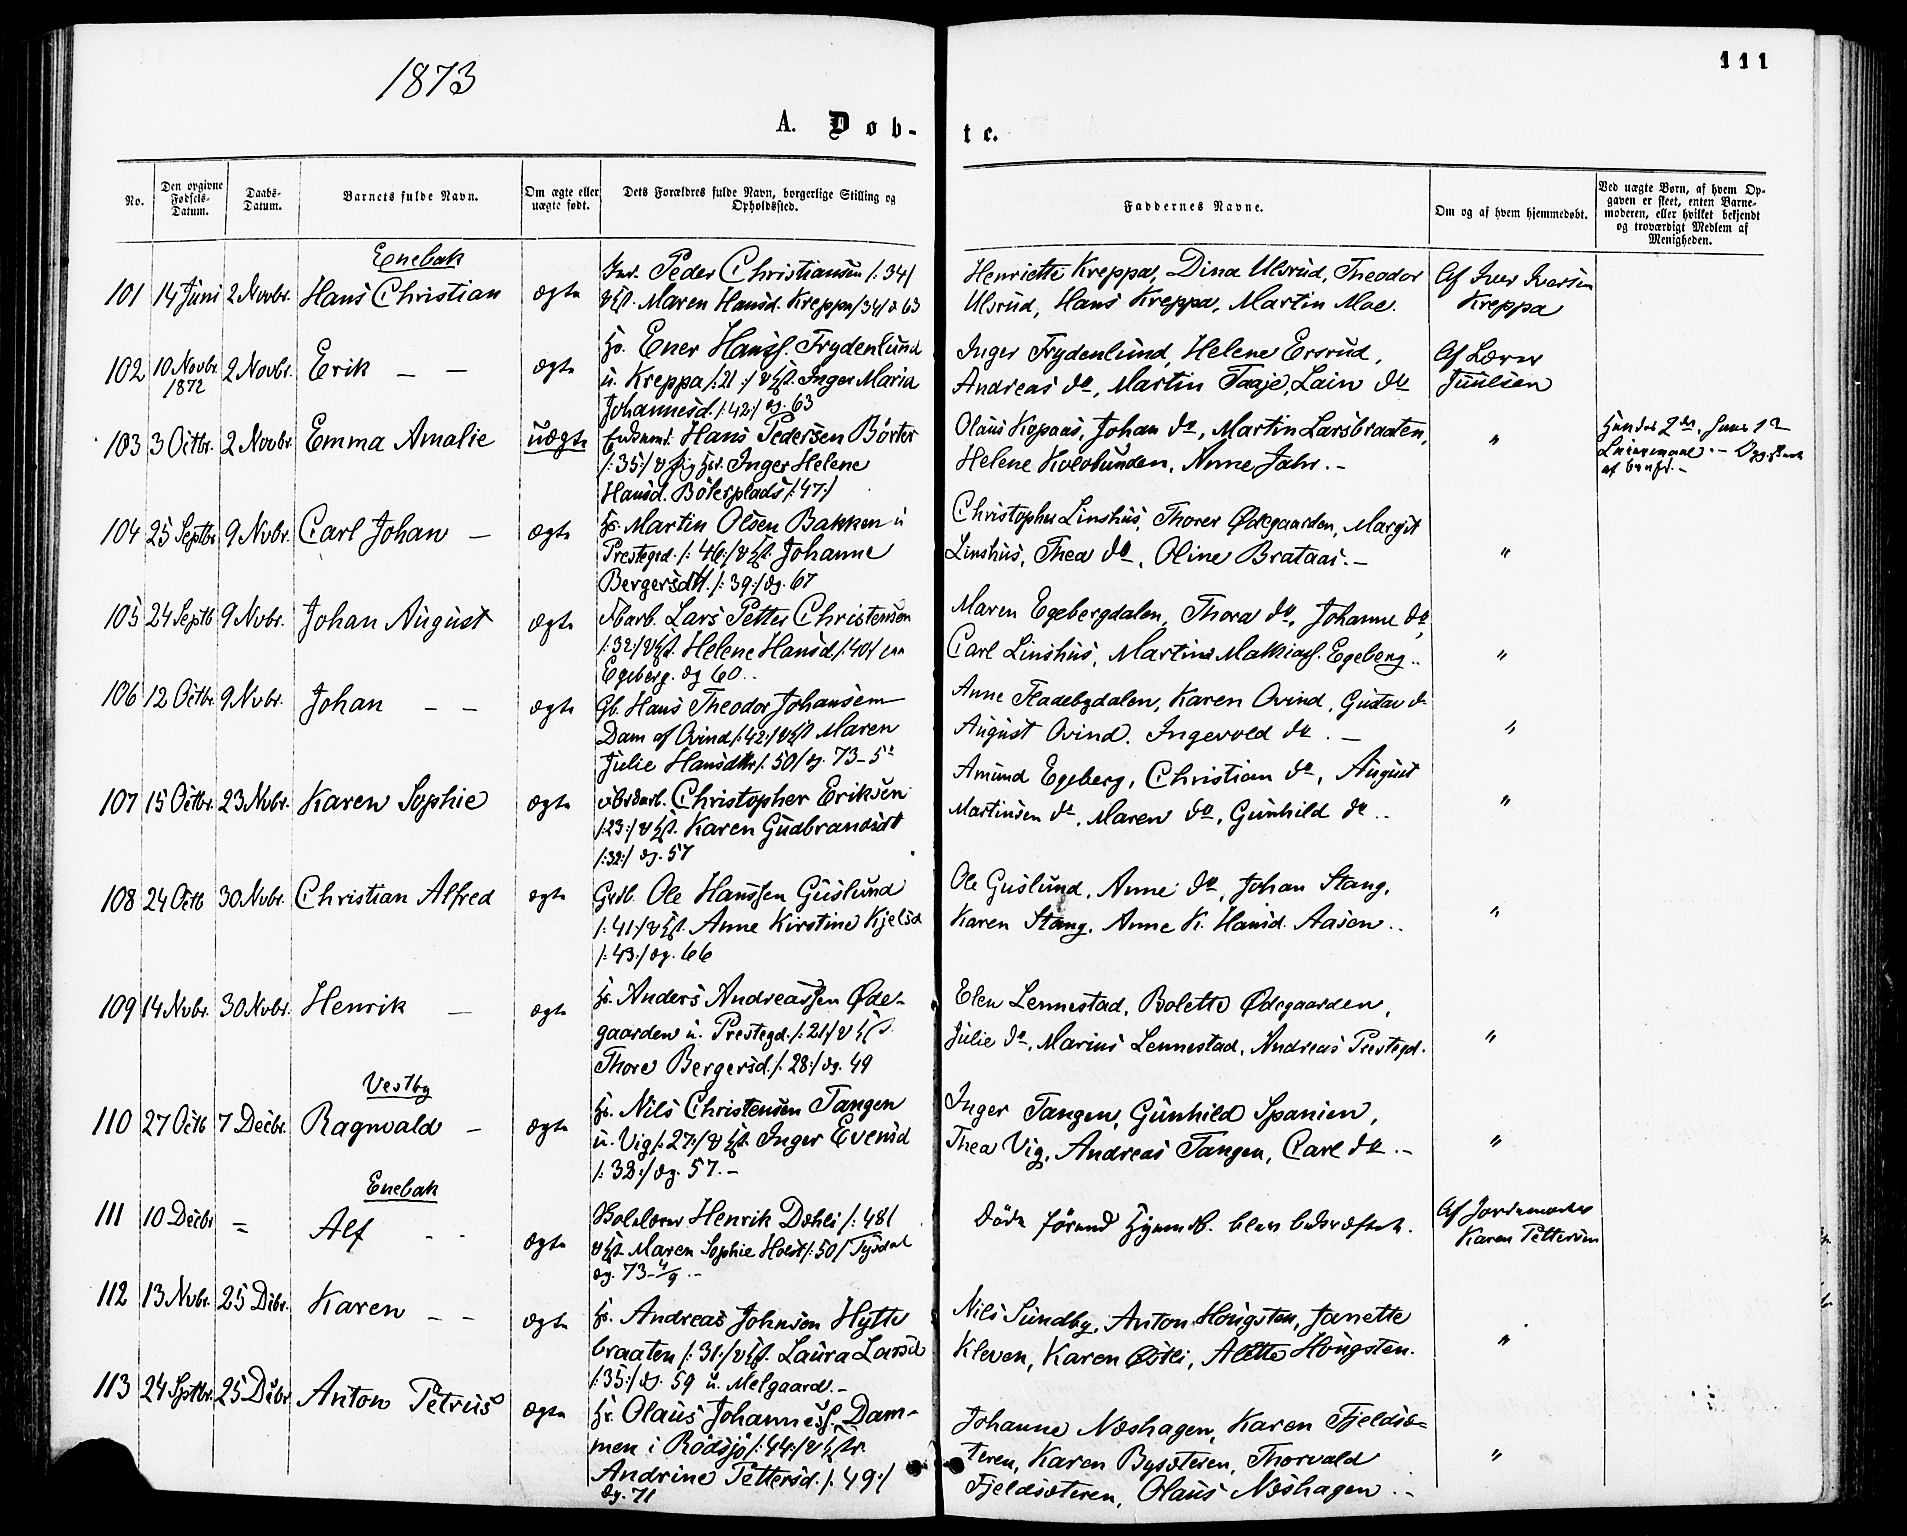 1873
111
A. Døb-
te.
No.
Den opgivne Fødsels-Datum.
Daabs-Datum.
Barnets fulde Navn.
Om ægte eller uægte født.
Dets Forældres fulde Navn, borgerlige Stilling og Opholdssted.
Faddernes Navne.
Om og af hvem hjemmedøbt.
Ved uægte Børn, af hvem Op-
gaven er skeet, enten Barne-
moderen, eller hvilket bekjendt
og troværdigt Medlem af
Menigheden.
Enebak
101 14 Juni 2 Novbr. Hans Christian ægte
Peder Christiansen /:34/
Maren Hansd. Kreppa /34/ 63
Henriette Kreppa, Dina Ulsrud, Theodor
Ulsrud, Hans Kreppa, Martin Moe.
Af Iver Iversen
Kreppa
102 10 Novbr. 1872 2 Novbr. Erik — — ægte
Hs. Ener Hanss. Frydenlund
u. Kreppa /:21:/ & Hst. Inger Maria
Johannesd. /:42:/ dg. 63
Inger Frydenlund, Helene Ersrud,
Andreas do, Martin Taaje, Lain do
Af Lærer
Juulsen
103 3 Octbr. 2 Novbr. Emma Amalie uægte
Hans Pedersen Børter
/:35:/ & Pig Inger Helene
Hansd. Bölerplads /:47:/
Olaus Kopaas, Johan do, Martin Larsbraaten,
Helene Kololunden, Anne Jahr. —
"
104 25 Septbr 9 Nvbr. Carl Johan — ægte
Hs. Martin Olsen Bakken u
Prestegrd. /:46:/ & Hst. Johanne
Bergersdtt. /:39:/ dg. 67
Christopher Linshus, Thorer Ødegaarden, Margit
Linshus, Thea do, Oline Brataas. —
"
105 24 Septb 9 Nvbr. Johan August ægte
Lars Petter Christensen
/:32:/ & Hst. Helene Hansd /:40/
Egeberg. dg 60..
Maren Egebergdalen, Thora do, Johanne do,
Carl Linshus, Martine Mathiass. Egeberg..
"
106 12 Octbr. 9 Nvbr. Johan — — ægte
Gb. Hans Theodor Johansen
Dam af Ovind /:42:/ & Hst Maren
Julie Hansdtr /:50/ dg. 73-5
Anne Fladebydalen, Karen Ovind, Gustav do
August Ovind. Ingevold do. —
"
107 15 Octbr. 23 Nvbr. Karen Sophie ægte
Christopher Eriksen
/:23:/ & Hst. Karen Gudbrandsdt
/:32:/ dg. 57
Amund Egeberg, Christian do, August
Martinsen do, Maren do, Gunhild do..
"
108 24 Octb 30 Nvbr. Christian Alfred ægte
Grdb. Ole Hanssen Guslund
/:41:/ & Hst. Anne Kirstine Kjelsd
/:43:/ dg. 66
Ole Guslund, Anne do, Johan Stang,
Karen Stang, Anne K. Hansd. Aasen..
"
109 14 Nvbr. 30 Nvbr. Henrik — ægte
Hs. Anders Andreassen Øde-
gaarden u. Prestegd. /:21/ & Hst.
Thore Bergersd. /:28:/ dg. 49
Elen Lennestad, Bolette Ødegaarden,
Julie do, Marius Lennestad, Andreas Prestegd.
"
Vestby
110 27 Octb 7 Decbr. Ragnvald — ægte
Hs. Nils Christensen Tangen
u. Vig /:27:/ & Hst. Inger Evensd
/:32:/ dg. 57. —
Inger Tangen, Gunhild Spanien,
Thea Vig, Andreas Tangen, Carl do. —
"
Enebak
111 10 Decbr = Alf - - ægte
Skolelærer Henrik Dæhli /:48/
& Hst. Maren Sophie Holst /:50/
dg. 73-4/9. —
døde førend Hjemdb. blev bekræftet.
Af Jordemoder
Karen Pettersen
112 13 Nvbr. 25 Dcbr. Karen — — ægte
Hs. Andreas Johnsen Hytte
braaten /:31:/ & Hst. Laura Larsd
/:35:/ dg. 59 u. Melgaard. —
Nils Sundby, Anton Høugsten, Janette
Kleven, Karen Østli, Alette Høugsten.
"
113 24 Sptbr. 25 Dcbr Anton Petrus ægte
Hs. Olaus Johanness. Dam-
men i Rødsjø /:44:/ & Hstr.
Andrine Pettersd. /:49:/
dg. 71
Johanne Næshagen, Karen Fjeldsæ-
teren, Karen Bysæteren, Thorvald
Fjeldsæteren, Olaus Næshagen. —
"